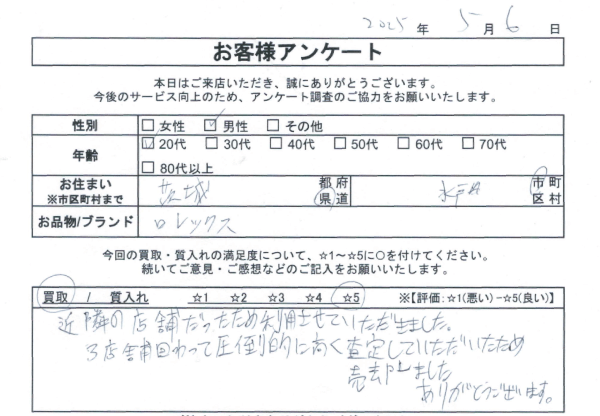 2025 年 5 月 6 日
お客様アンケート
本日はご来店いただき、誠にありがとうございます。
今後のサービス向上のため、アンケート調査のご協力をお願いいたします。
性別 □ 女性 ☑ 男性 □ その他
年齢 ☑ 20代 □ 30代 □ 40代 □ 50代 □ 60代 □ 70代
□ 80代以上
お住まい ※市区町村まで 茨城 都府県道 水戸 市町区村
お品物/ブランド ロレックス
今回の買取・質入れの満足度について、☆1～☆5に○を付けてください。
続いてご意見・ご感想などのご記入をお願いいたします。
買取 / 質入れ ☆1 ☆2 ☆3 ☆4 ☆5 ※【評価:☆1(悪い)-☆5(良い)】
近隣の店舗だったため利用させていただきました。
3店舗回わって圧倒的に高く査定していただいたため
売却しました
ありがとうございます。